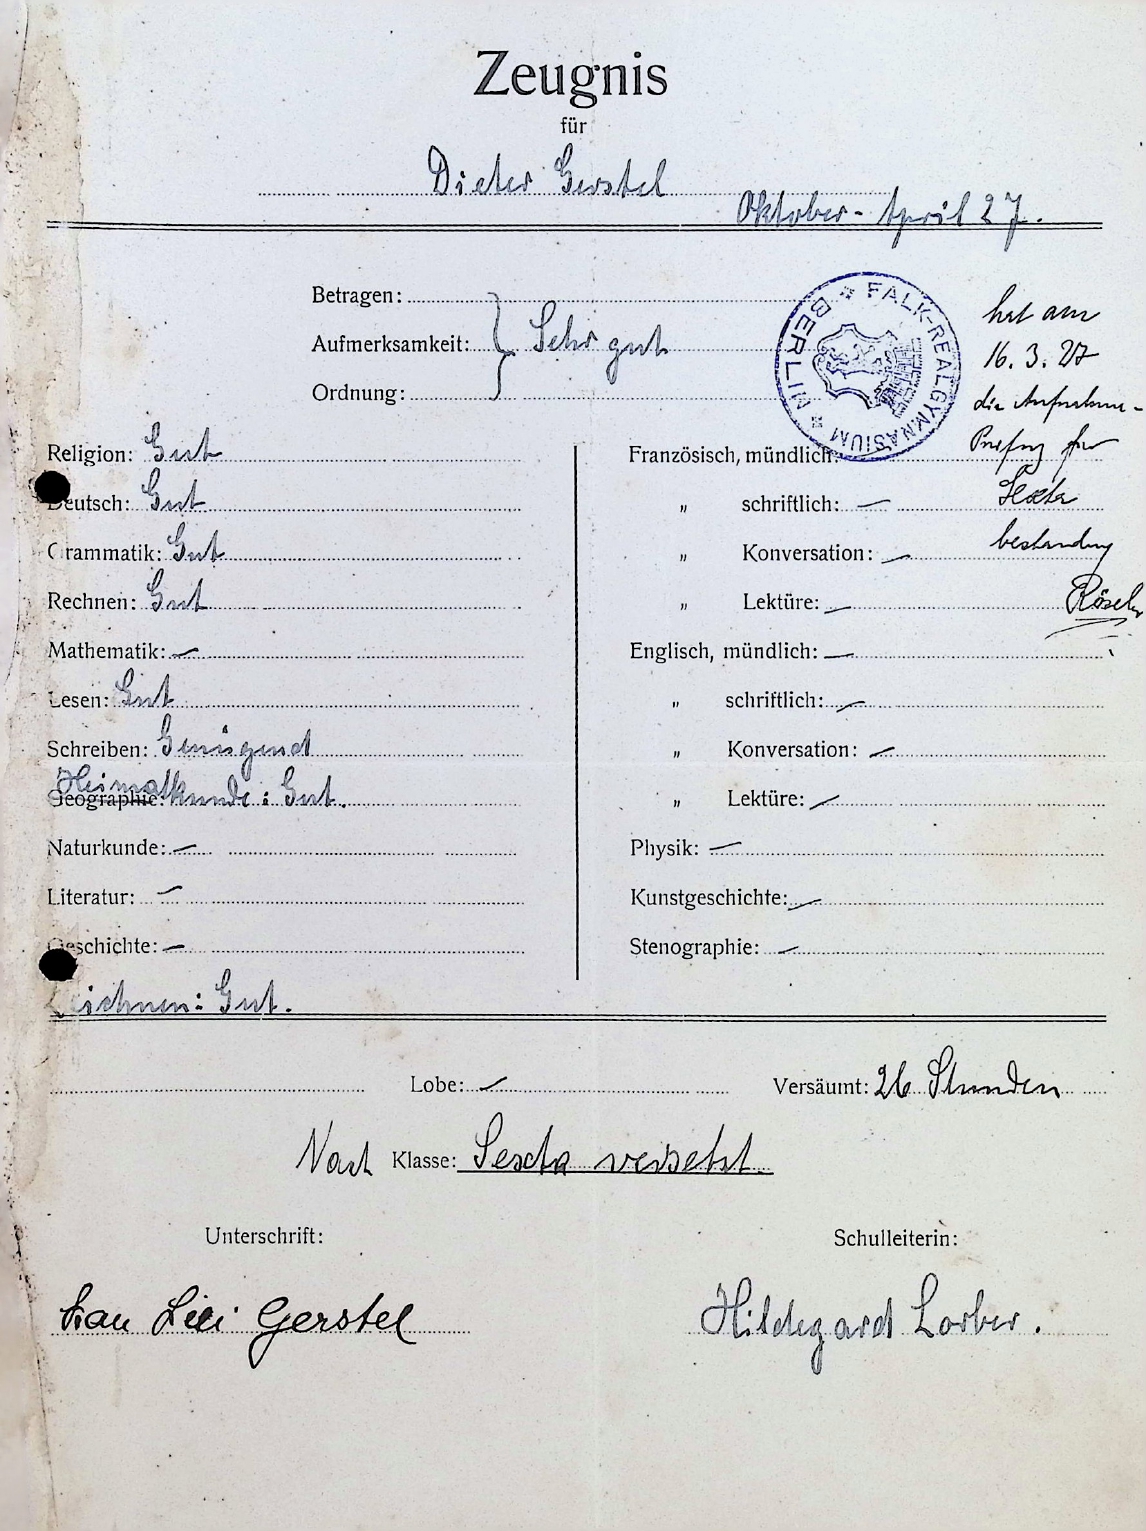 Zeugnis
für
Dieter Gerstel
Oktober - April 27.
Betragen:
Aufmerksamkeit: Sehr gut
Ordnung:
FALK-REALGYMNASIUM * BERLIN *
hat am
16. 3. 27
die Aufnahme-
Prüfung für
Sexta
bestanden
Religion: Gut
Deutsch: Gut
Grammatik: Gut
Rechnen: Gut
Mathematik: —
Lesen: Gut
Schreiben: Genügend
Heimatkunde: Gut.
Geographie:
Naturkunde: —
Literatur: —
Geschichte: —
Zeichnen: Gut.
Französisch, mündlich:
„ schriftlich: —
„ Konversation: —
„ Lektüre: —
Englisch, mündlich: —
„ schriftlich: —
„ Konversation: —
„ Lektüre: —
Physik: —
Kunstgeschichte: —
Stenographie: —
Lobe: — Versäumt: 26 Stunden
Nach Klasse: Sexta versetzt.
Unterschrift: Schulleiterin:
Frau Lili Gerstel Hildegard Lorber.